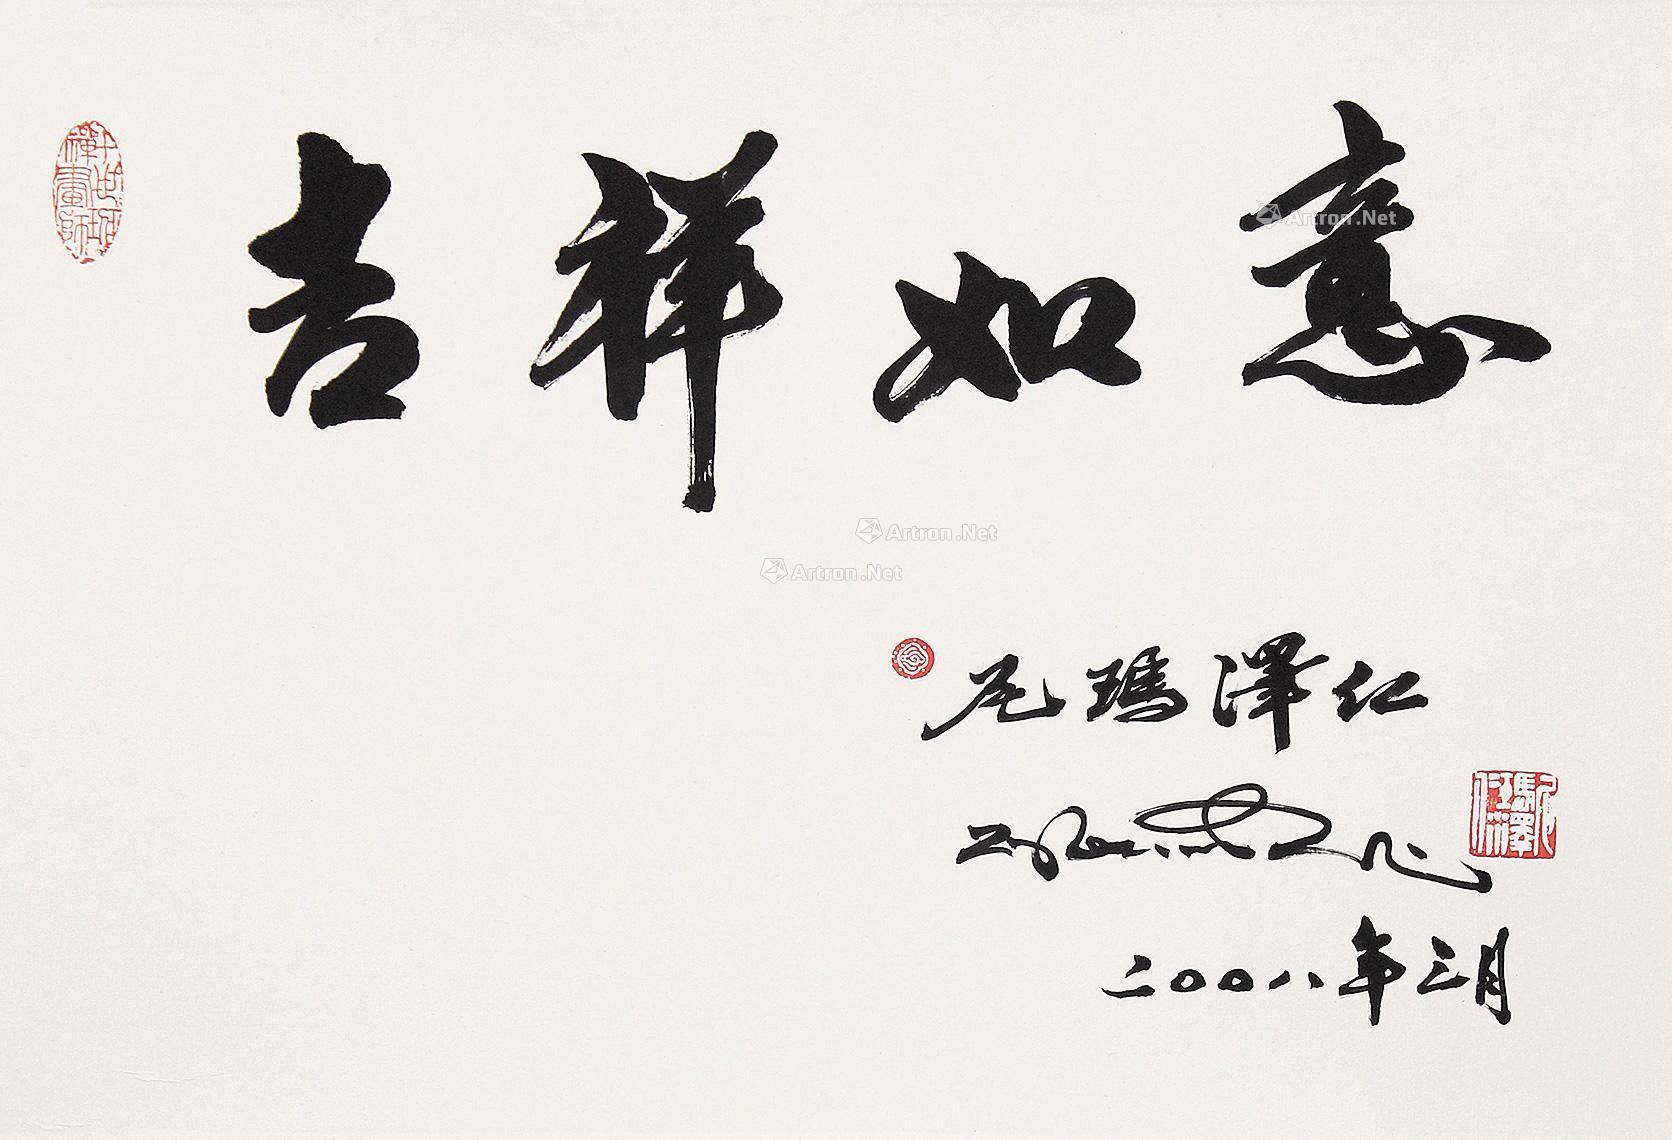 吉祥如意
Artron.Net
Artron.Net
Artron.Net
尼瑪澤仁
二〇〇八年三月